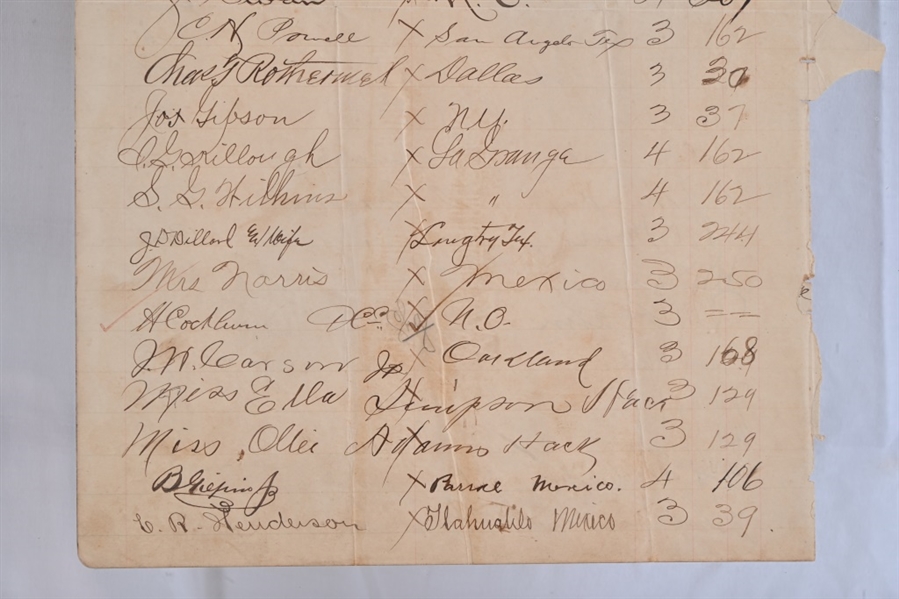 C. N. Powell X San Angelo Tex 3 162
Chas F Rothermel X Dallas 3 30
Jos Gibson X N.Y. 3 37
Killough X La Grange 4 162
S. G. Wilkins X " 4 162
J. D. Dillard & Wife X Langtry Tex. 3 244
Mrs Norris X Mexico 3 250
H Cockburn X N.O. 3 ==
J. W. Carson Jr X Oakland 3 168
Miss Ella Simpson 3 129
Miss Ollie Adams Hack 3 129
X Mexico. 4 106
C. R. Henderson X Tlahualilo Mexico 3 39.